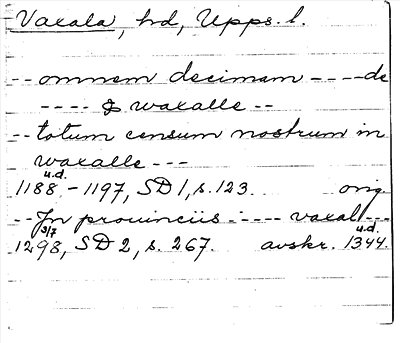 Vaxala, hd, Upps. l.
-- omnem decimam ---- de
---- & waxalle --
-- totum censum nostrum in
waxalle ---
u.d.
1188 - 1197, SD 1, s. 123. orig.
-- In prouinciis :---- vaxal ---
3/7 u.d.
1298, SD 2, s. 267. avskr. 1344.